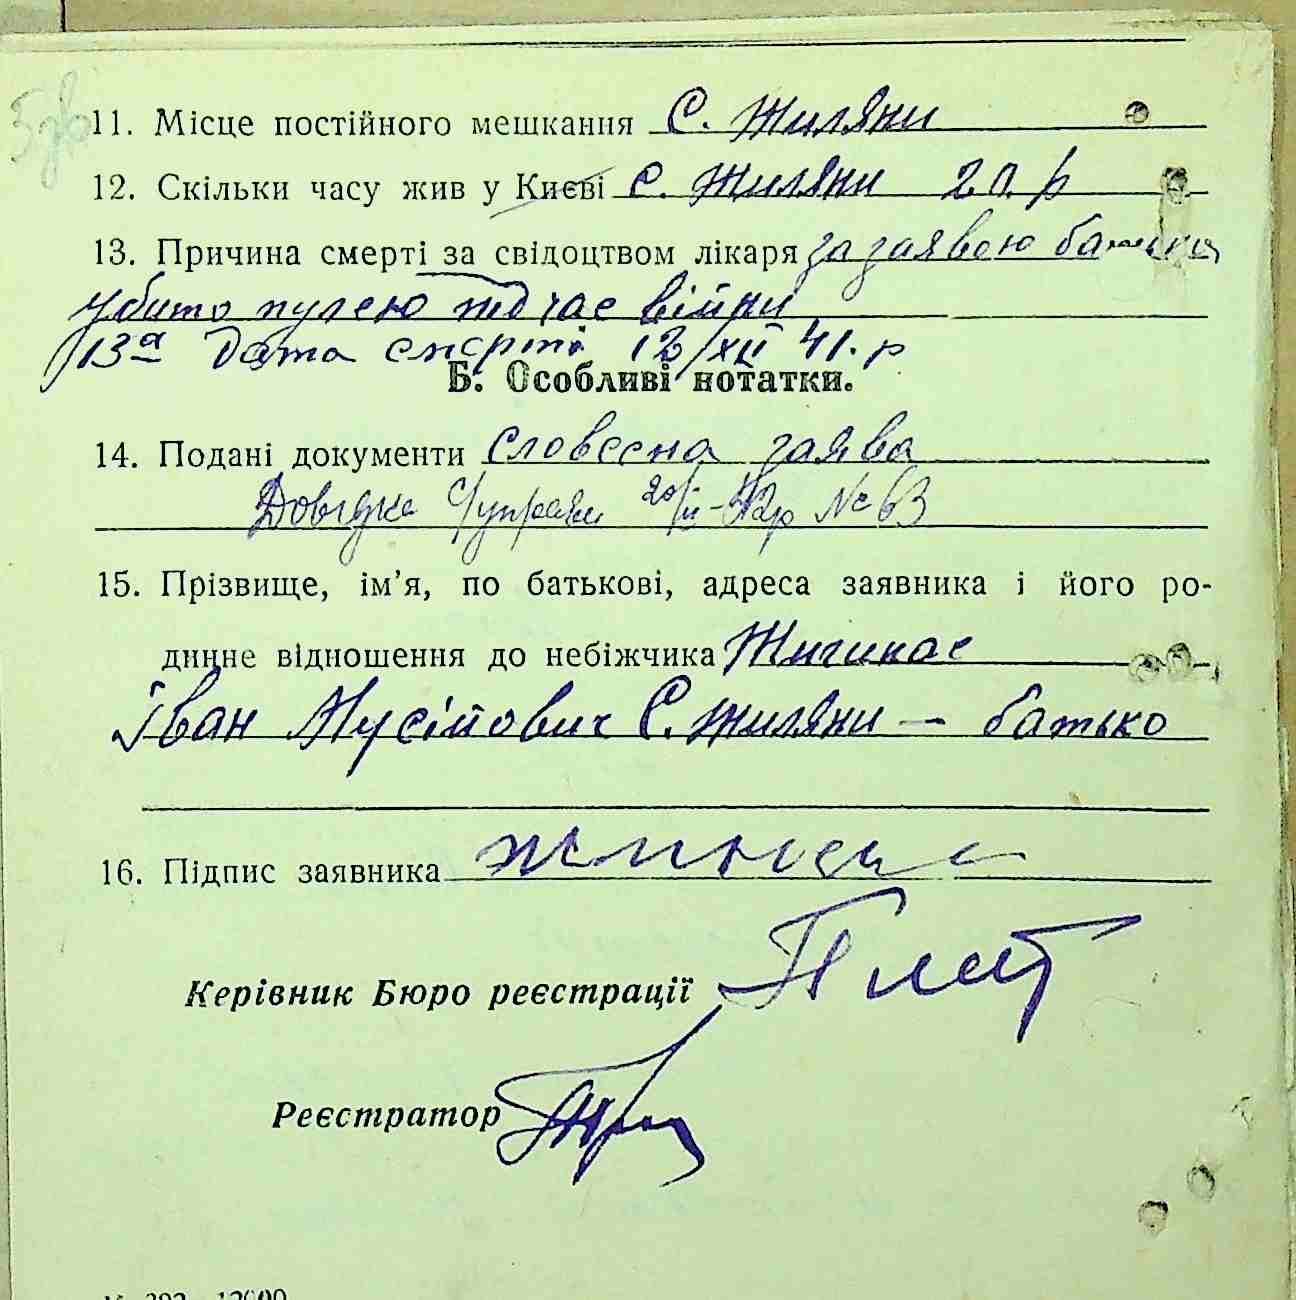 11. Місце постійного мешкання С. Жиляни
12. Скільки часу жив у Києві с. Жиляни
13. Причина смерті за свідоцтвом лікаря за заявою батька
убито пулею під час війни
13а Дата смерті 12/XII 41. р
Б. Особливі нотатки.
14. Подані документи словесна заява
Довідка С/управи 20/II-42р № 63
15. Прізвище, ім’я, по батькові, адреса заявника і його ро-
динне відношення до небіжчика
Іван Мусійович С. Жиляни — батько
16. Підпис заявника
Керівник Бюро реєстрації
Реєстратор